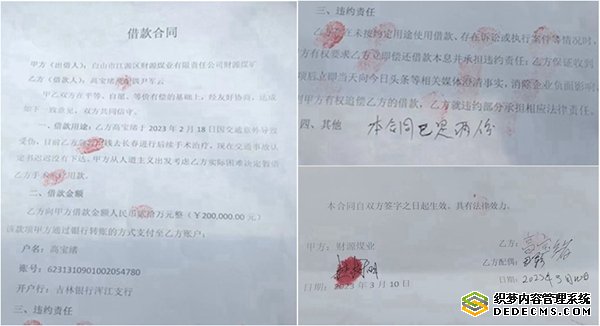 借款合同
甲方（出借人）：白山市江源区财源煤业有限责任公司财源煤矿
乙方（借款人）：高宝绪
甲乙双方在平等、自愿、等价有偿的基础上，经友好协商，达成
如下一致意见，双方共同信守。
一、借款用途：乙方高宝绪于 2023 年 2 月 18 日因交通意外导致
受伤，目前乙方急需用钱去长春进行后续手术治疗，现在交通事故认
定书迟迟没有下达，甲方从人道主义出发考虑乙方实际困难决定暂借
乙方手术费用款。
二、借款金额
乙方向甲方借款金额人民币贰拾万元整（￥200,000.00 元）
该款项甲方通过银行转账的方式支付至乙方账户：
户名：高宝绪
账号：6231310901002054780
开户行：吉林银行浑江支行
三、违约责任
三、违约责任
乙方在未按约定用途使用借款、存在诉讼或执行案件等情况时，
甲方有权要求乙方立即偿还借款本息并承担违约责任；乙方保证收到
款项后立即当天向今日头条等相关媒体澄清事实，消除企业负面影响，
则甲方有权追偿乙方的借款，乙方就违约部分承担相应法律责任。
四、其他 本合同已见两份
本合同自双方签字之日起生效，具有法律效力。
甲方：财源煤业
乙方：高宝绪
乙方配偶：
日期：2023 年 3 月 10 日
日期：2023年3月10日
织梦内容管理系统
DEDECMS.COM